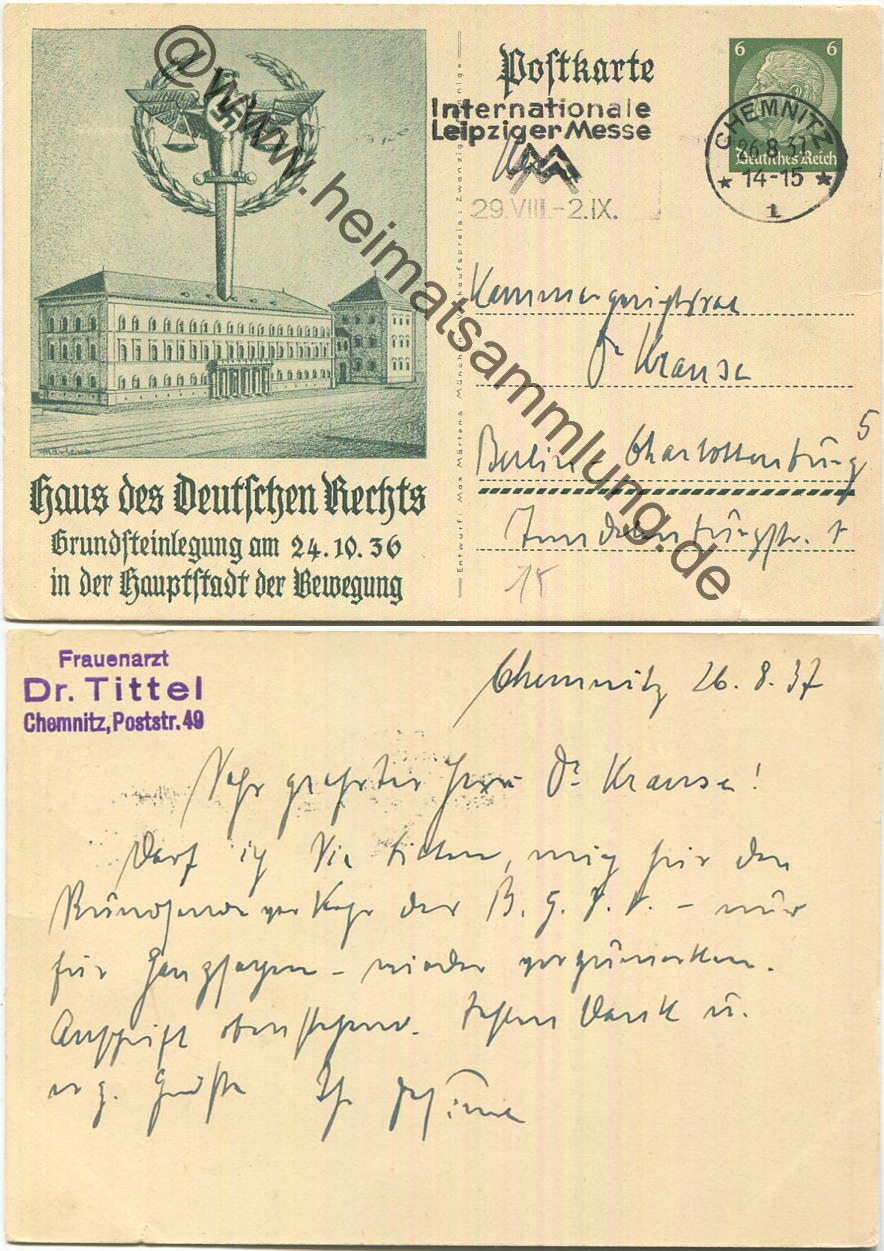 Postkarte
6 6
Deutsches Reich
Internationale
Leipziger Messe
29. VIII.-2. IX.
CHEMNITZ
26.8.37
★ 14-15 ★
1
Märtens
Haus des Deutschen Rechts
Grundsteinlegung am 24.10.36
in der Hauptstadt der Bewegung
Entwurf: Max Märtens Münch
kaufspreis: Zwanzig
nige
Kammergerichtsrat
Dr Krause
Berlin Charlottenburg 5
@www.heimatsammlung.de
Frauenarzt
Dr. Tittel
Chemnitz, Poststr. 49
Chemnitz 26.8.37
Sehr geehrter Herr Dr. Krause!
Darf ich Sie bitten, mich für den
Rundsendeverkehr der B.G.
– nur
für Ganzsachen – wieder vorzumerken.
Anschrift obenstehend. Besten Dank u.
Grüße Ihr